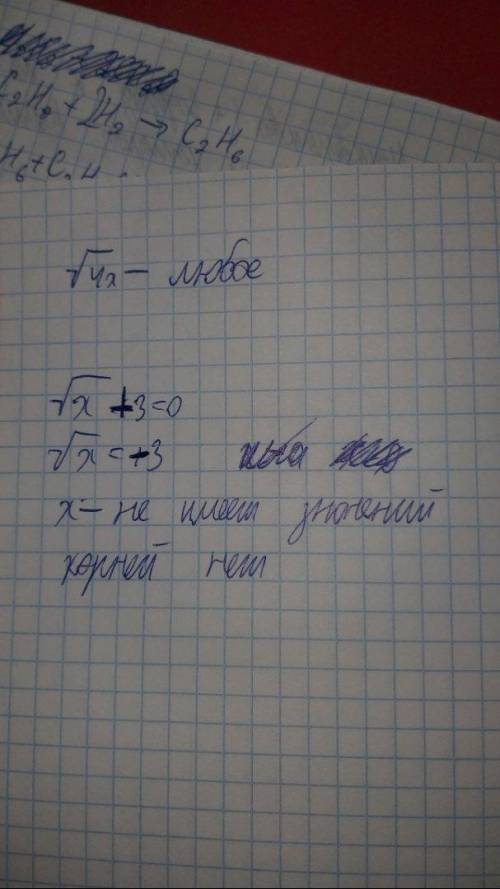 C₂H₂ + 2H₂ → C₂H₆
H₆ + C
√4x – любое
√x + 3 = 0
√x = -3
x – не имеет значений
корней нет